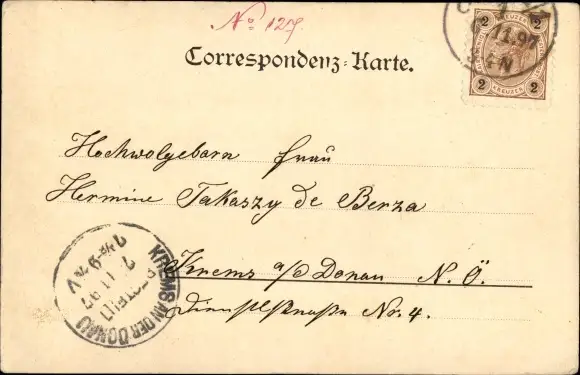 No 127.
Correspondenz-Karte.
2 KREUZER 2
6 11.97
2 KREUZER 2
Hochwolgeborn Frau
Hermine Takaszy de Berza
Krems a/d Donau N.Ö.
Dienstlstraße Nr. 4.
KREMS AN DER DONAU
BESTELLT
7. 11. 97